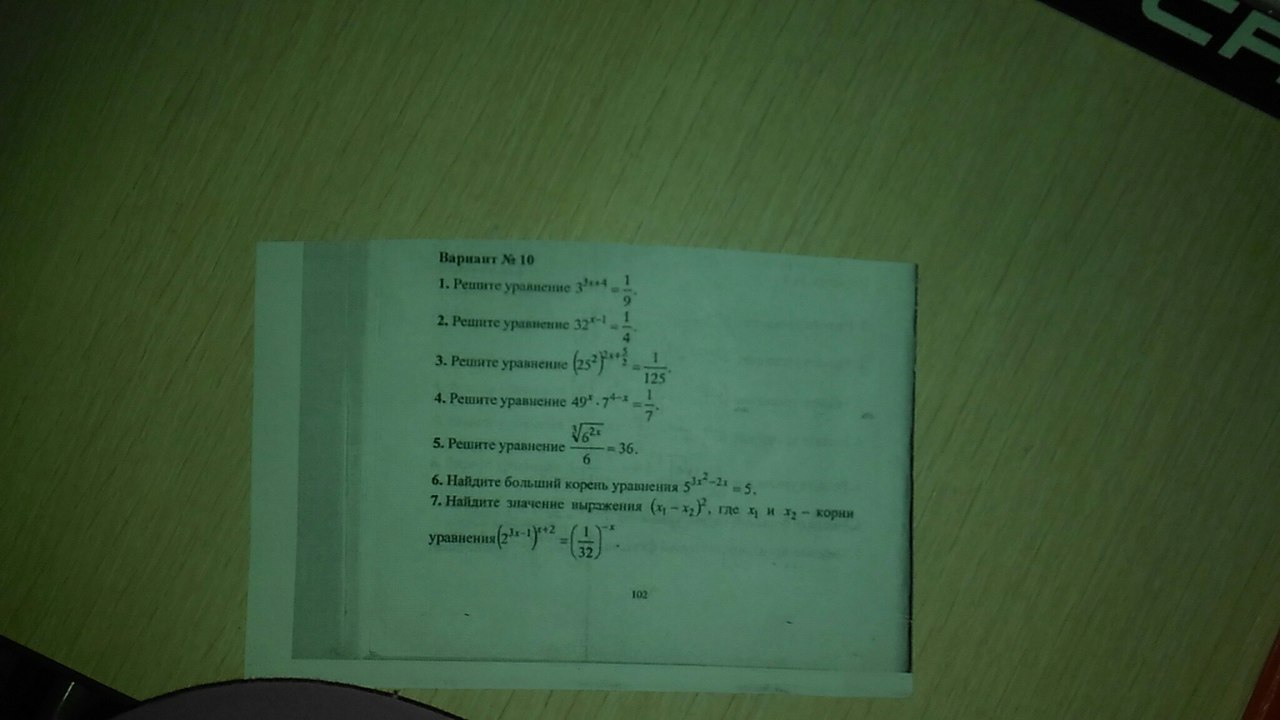 Вариант № 10
1. Решите уравнение 3^{3x+4} = \frac{1}{9}.
2. Решите уравнение 32^{x-1} = \frac{1}{4}.
3. Решите уравнение (25^2)^{2x+\frac{5}{2}} = \frac{1}{125}.
4. Решите уравнение 49^x · 7^{4-x} = \frac{1}{7}.
5. Решите уравнение \frac{\sqrt[3]{6^{2x}}}{6} = 36.
6. Найдите больший корень уравнения 5^{3x^2-2x} = 5.
7. Найдите значение выражения (x_1 – x_2)^2, где x_1 и x_2 – корни
уравнения (2^{3x-1})^{x+2} = (\frac{1}{32})^{-x}.
102